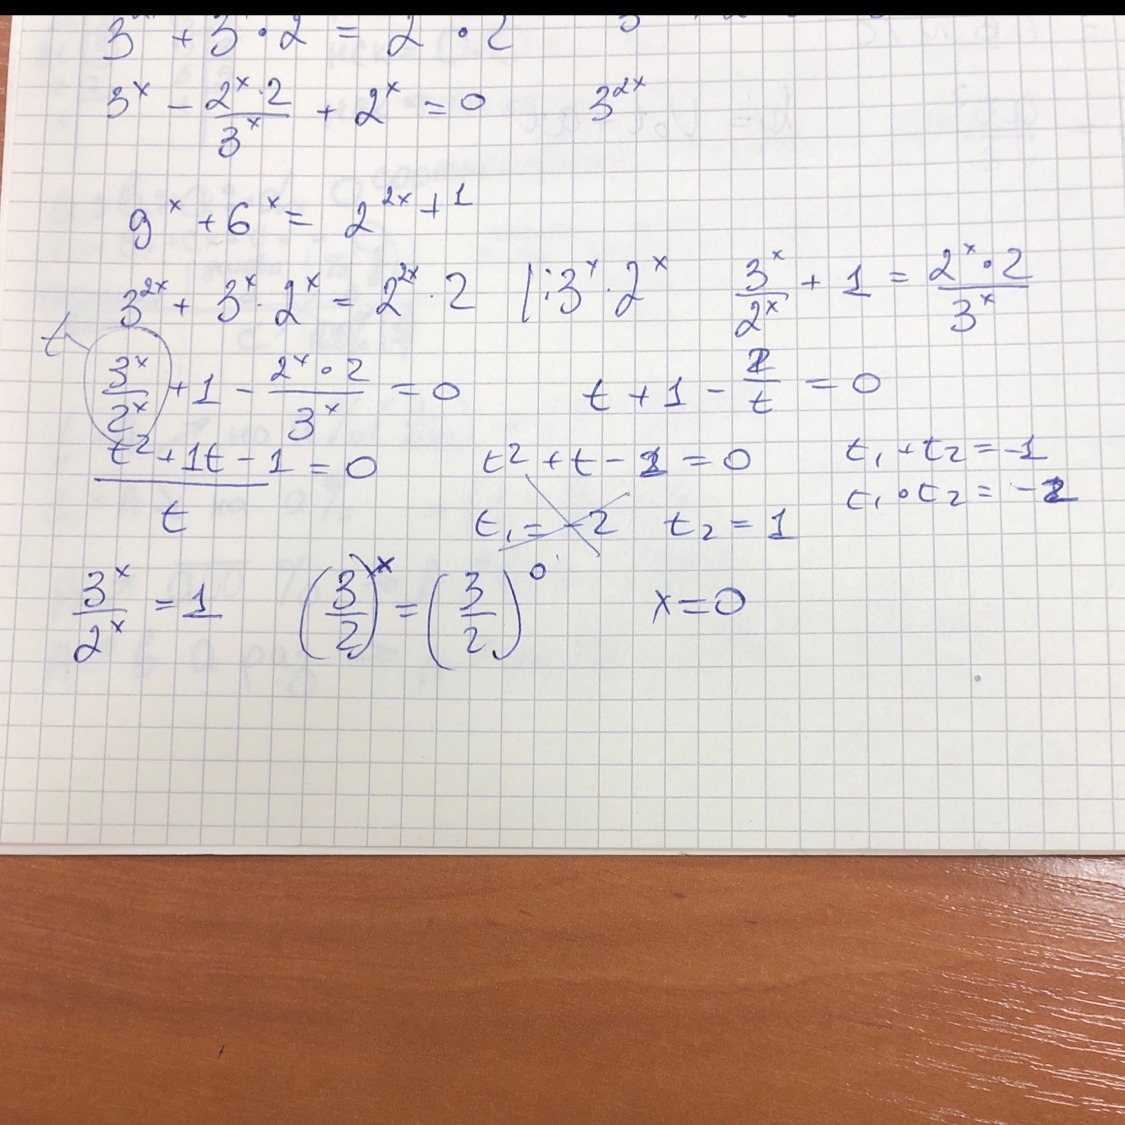 3ˣ + 3ˣ · 2 = 2 · 2
3ˣ − (2ˣ · 2)/3ˣ + 2ˣ = 0    3²ˣ
9ˣ + 6ˣ = 2²ˣ⁺¹
3²ˣ + 3ˣ · 2ˣ = 2²ˣ · 2 | : 3ˣ · 2ˣ    3ˣ/2ˣ + 1 = (2ˣ · 2)/3ˣ
t
3ˣ/2ˣ + 1 − (2ˣ · 2)/3ˣ = 0    t + 1 − 2/t = 0
(t² + 1t − 1)/t = 0    t² + t − 2 = 0    t₁ + t₂ = −1
t₁ · t₂ = −2
t₁ = −2    t₂ = 1
3ˣ/2ˣ = 1    (3/2)ˣ = (3/2)⁰    x = 0